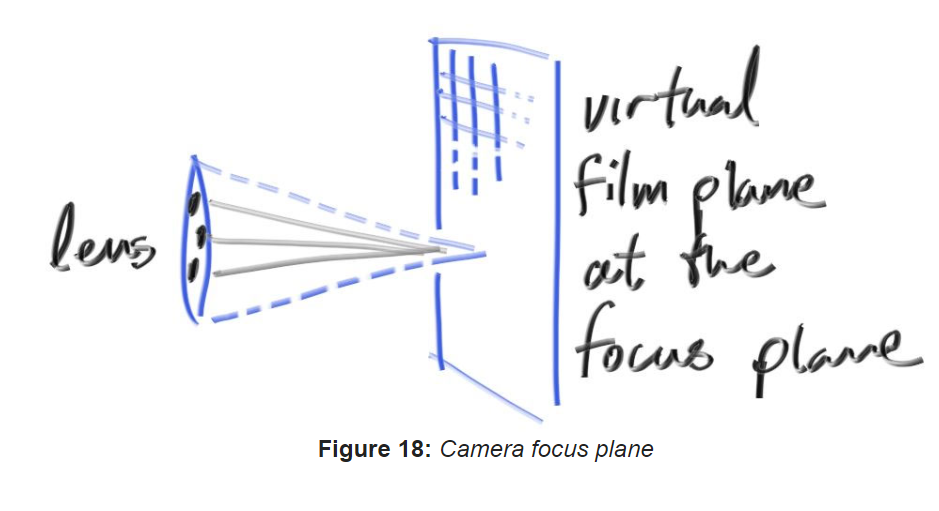 lens
virtual
film plane
at the
focus plane
Figure 18: Camera focus plane